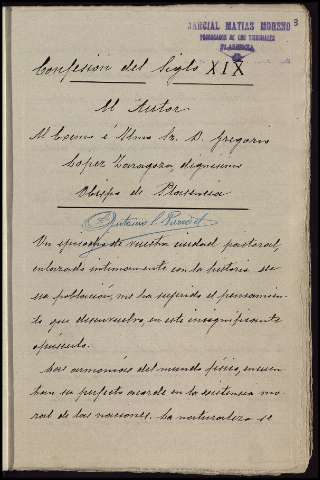 MARCIAL MATIAS MORENO
PROCURADOR DE LOS TRIBUNALES
PLASENCIA
3
Confesión del Siglo XIX
Al Autor
Al Excmo é Ilmo Sr. D. Gregorio
Lopez Zaragoza, dignisimo
Obispo de Plasencia
Un episodio de vuestra ciudad pastoral,
enlazado intimamente con la historia de
su población, me ha sugerido el pensamien-
to que desenvuelvo, en este insignificante
opúsculo.
Las armonías del mundo físico, encuen-
tran su perfecto acorde en la existencia mo-
ral de las naciones. La naturaleza se